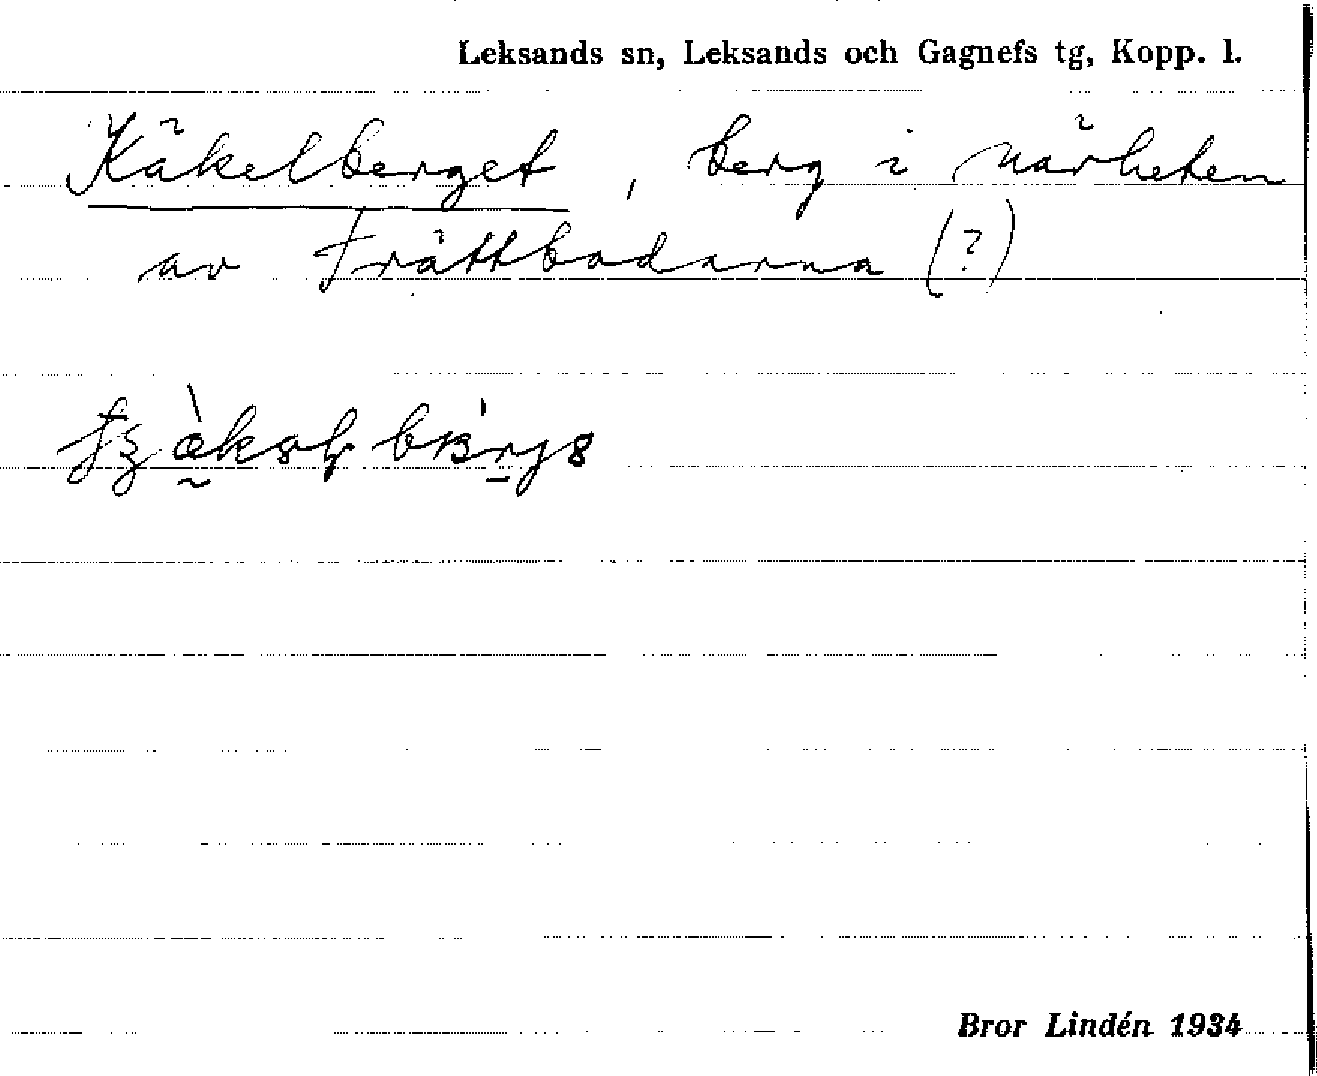 Leksands sn, Leksands och Gagnefs tg, Kopp. l.
Käkelberget, berg i närheten
av Frättbodarna (?)
Bror Lindén 1934